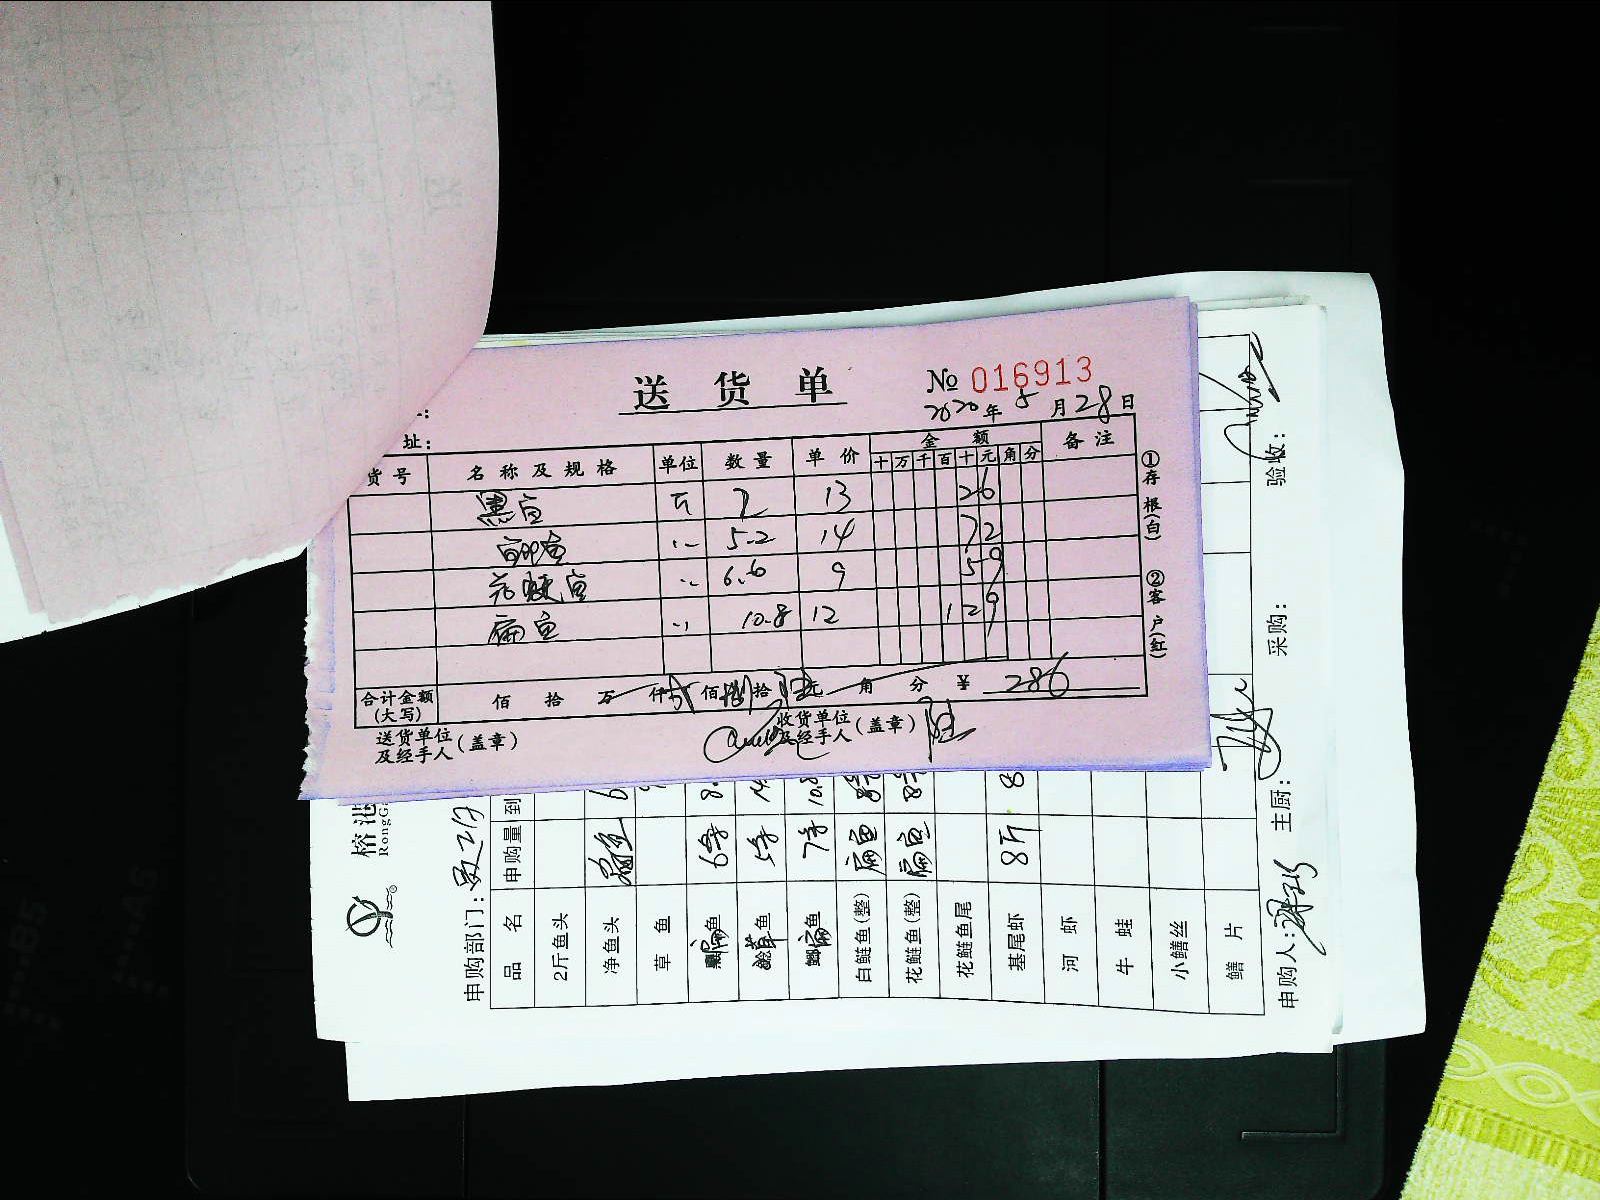 送货单
№ 016913
2020年5月28日
址：
货号 名称及规格 单位 数量 单价 金额 备注
十 万 千 百 十 元 角 分
黑鱼 斤 2 13 26
5.2 14 72
花鲢鱼 6.6 9 59
扁鱼 10.8 12 129
合计金额(大写) 佰 拾 万 仟 贰 佰 捌 拾 陆 元 角 分 ¥ 286
送货单位及经手人(盖章) 收货单位及经手人(盖章)
①存根(白) ②客户(红)
榕港
RongG
申购部门：
品名 申购量 到
2斤鱼头
净鱼头
草鱼
鱼 6斤
鱼 5斤
鱼 7斤 10.8
白鲢鱼(整) 扁鱼
花鲢鱼(整) 扁鱼
花鲢鱼尾
基尾虾 8斤 8
河虾
牛蛙
小鳝丝
鳝片
申购人： 主厨： 采购： 验收：